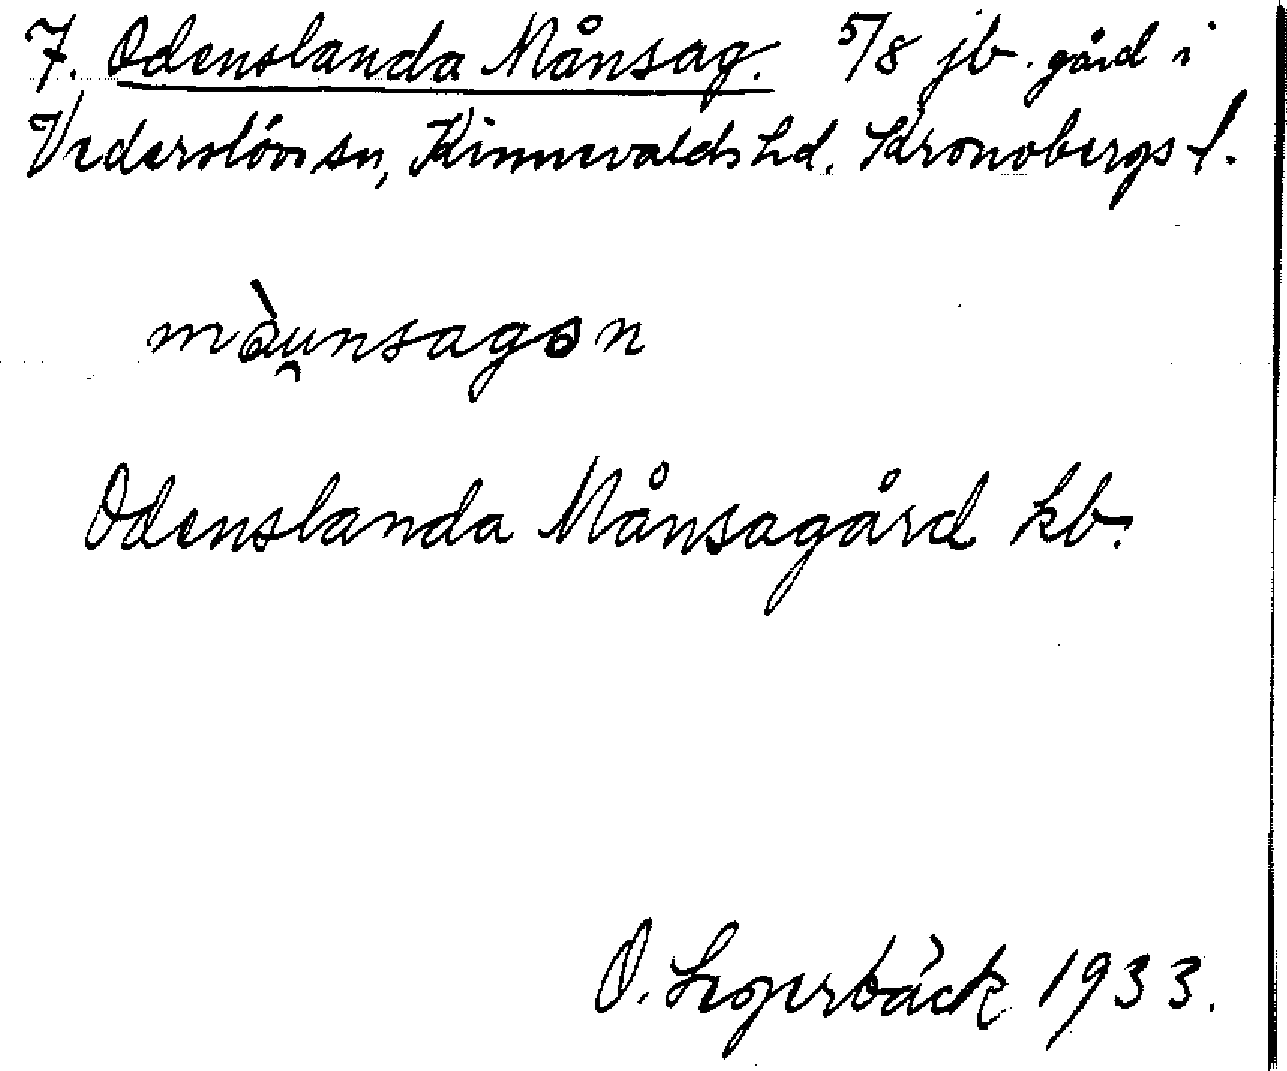 7. Odenslanda Månsag. 5/8 jb. gård i
Vederslövs sn, Kinnevalds hd. Kronobergs l.
mòu̯nsagon
Odenslanda Månsagård kb.
O. 1933.